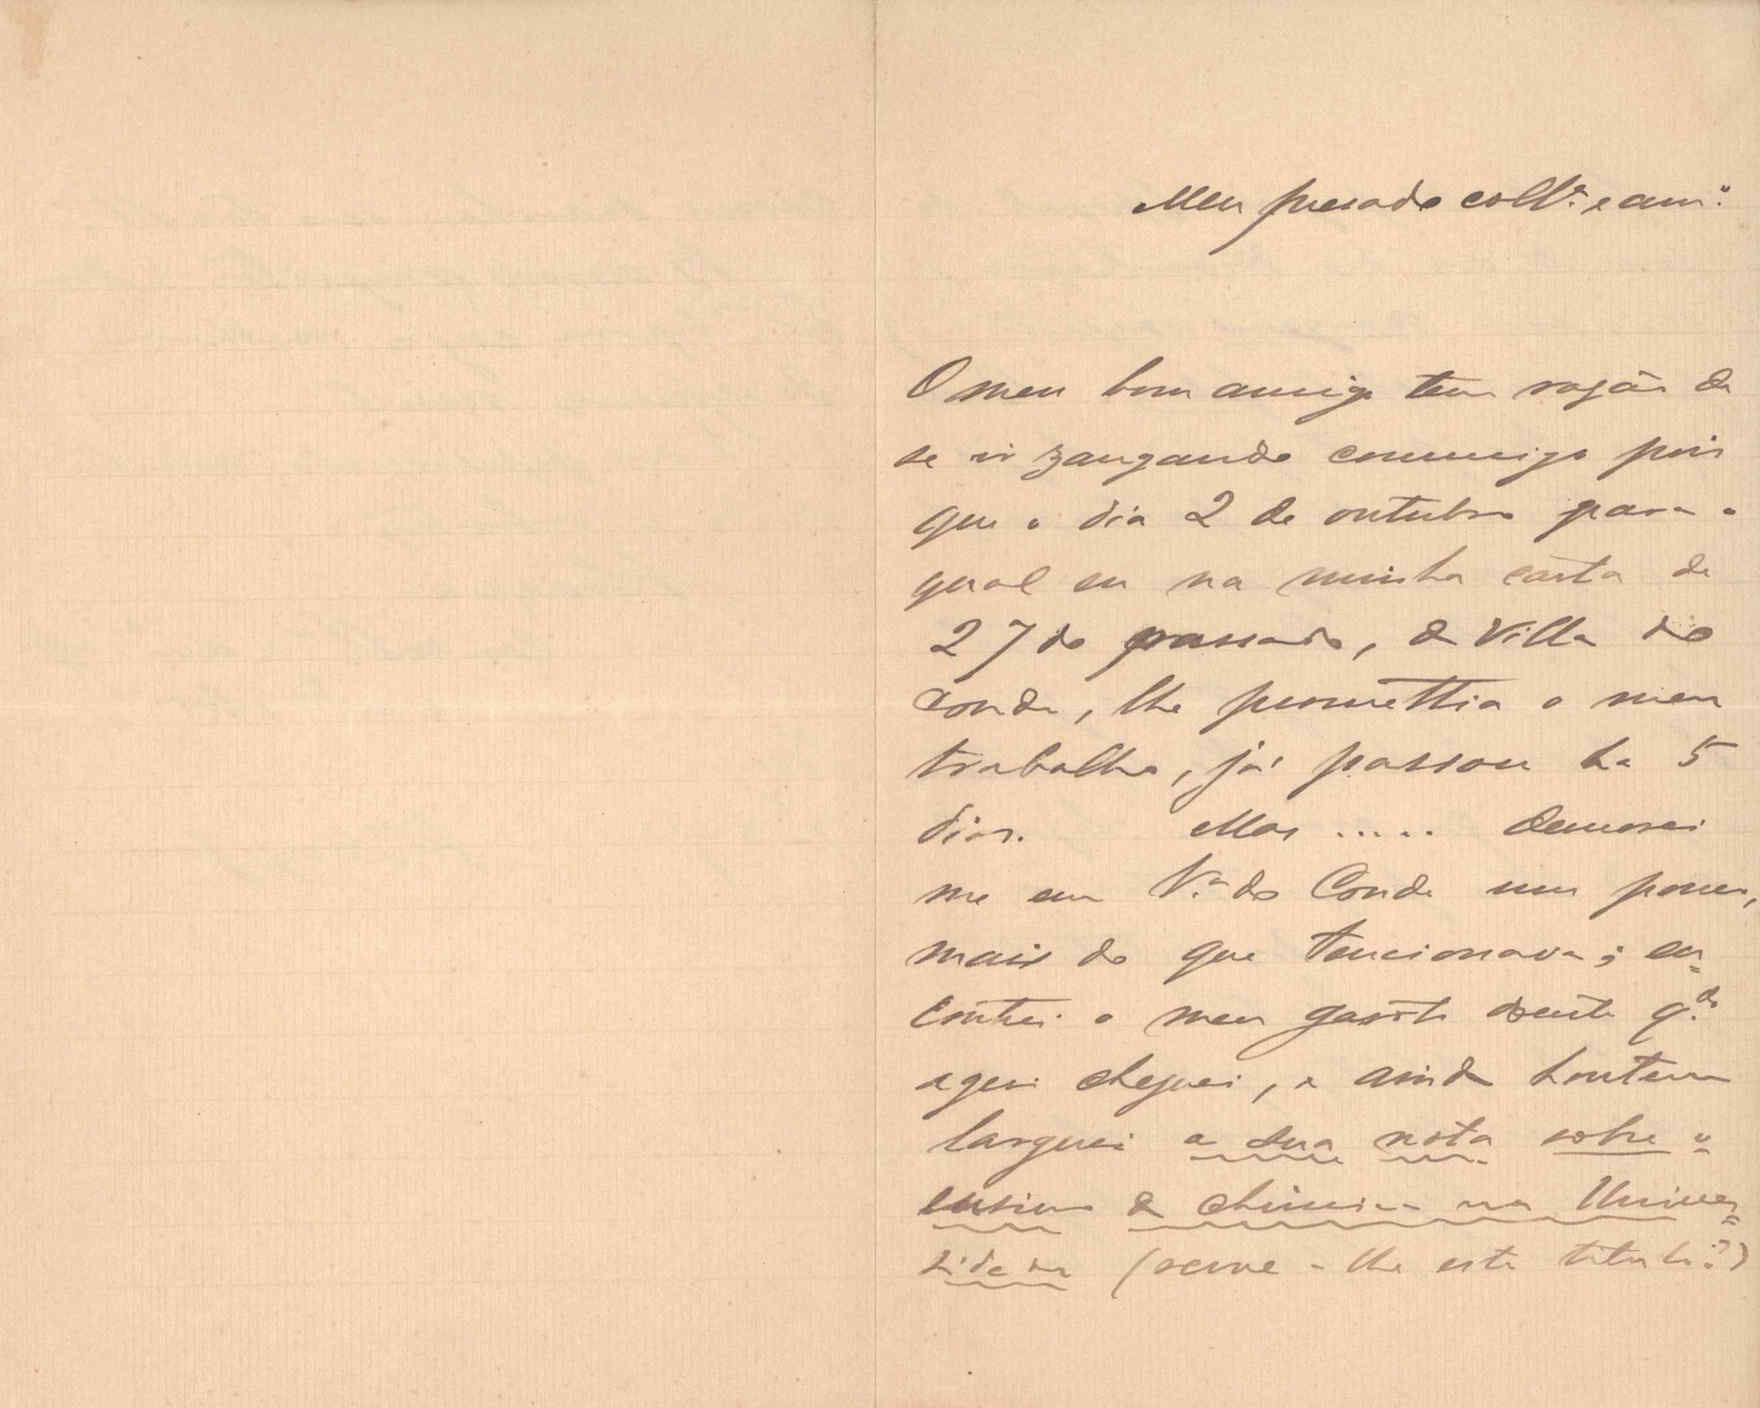 Meu presado coll.ª e am.º
O meu bom amigo tem razão de
se ir zangando commigo pois
que o dia 2 de outubro para o
qual eu na minha carta de
27 do passado, de Villa do
Conde, lhe promettia o meu
trabalho, já passou ha 5
dias. Mas ..... demorei
me em V.ª do Conde um pouco,
mais do que tencionava; en=
contrei o meu garoto doente q.do
aqui cheguei, e ainda hontem
larguei a sua nota sobre o
ensino de chimica na Univer=
sidade (serve-lhe este titulo?)